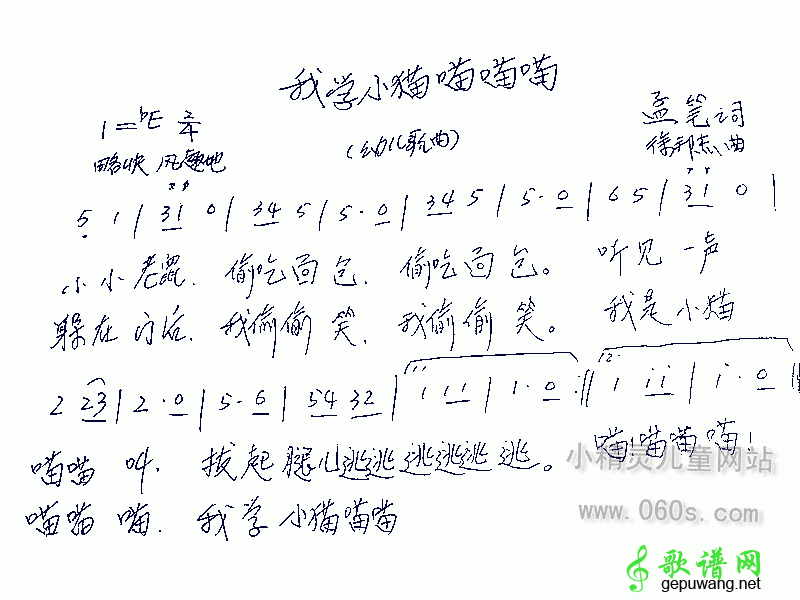 我学小猫喵喵喵
1=bE 2/4
孟笔词
略快 风趣地
(幼儿歌曲)
徐邦杰曲
5 1 | 31 0 | 34 5 | 5· 0 | 34 5 | 5· 0 | 65 | 31 0 |
小小老鼠. 偷吃面包. 偷吃面包。 听见一声
躲在门后. 我偷偷笑. 我偷偷笑。 我是小猫
2 23 | 2·0 | 5·6 | 54 32 | 1. 1 11 | 1·0 :‖ 2. i ii | i·0 ‖
喵喵叫. 拔起腿儿逃逃逃逃逃逃。 喵!喵喵喵!
喵喵喵. 我学小猫喵喵喵
小精灵儿童网站
www.060s.com
歌谱网
gepuwang.net